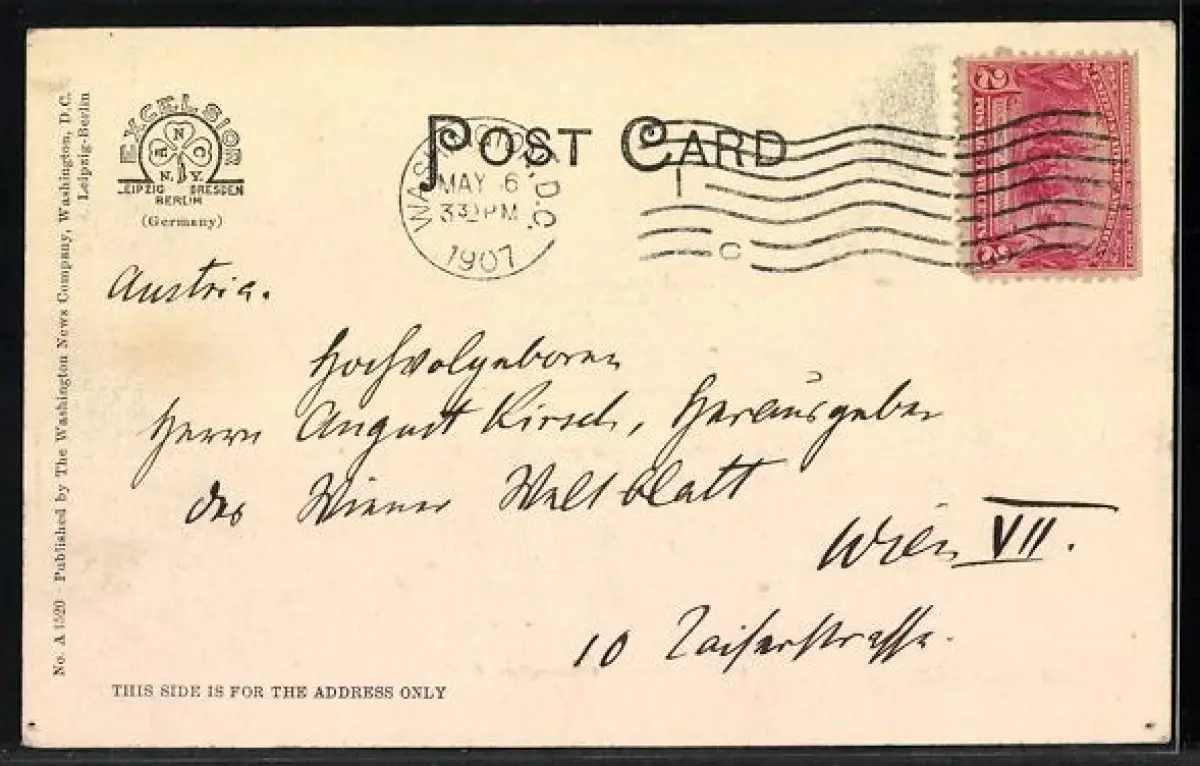 No. A 1520 - Published by The Washington News Company, Washington, D.C.
Leipzig-Berlin
EXCELSIOR
N
C
N.Y.
LEIPZIG DRESDEN
BERLIN
(Germany)
POST CARD
WASHINGTON, D.C.
MAY 6
PM
1907
C
2 2
Austria.
Hochwolgeboren
Herrn August Kirsch, Herausgeber
des Wiener Weltblatt
Wien VII.
10 Zaiserstrasse.
THIS SIDE IS FOR THE ADDRESS ONLY